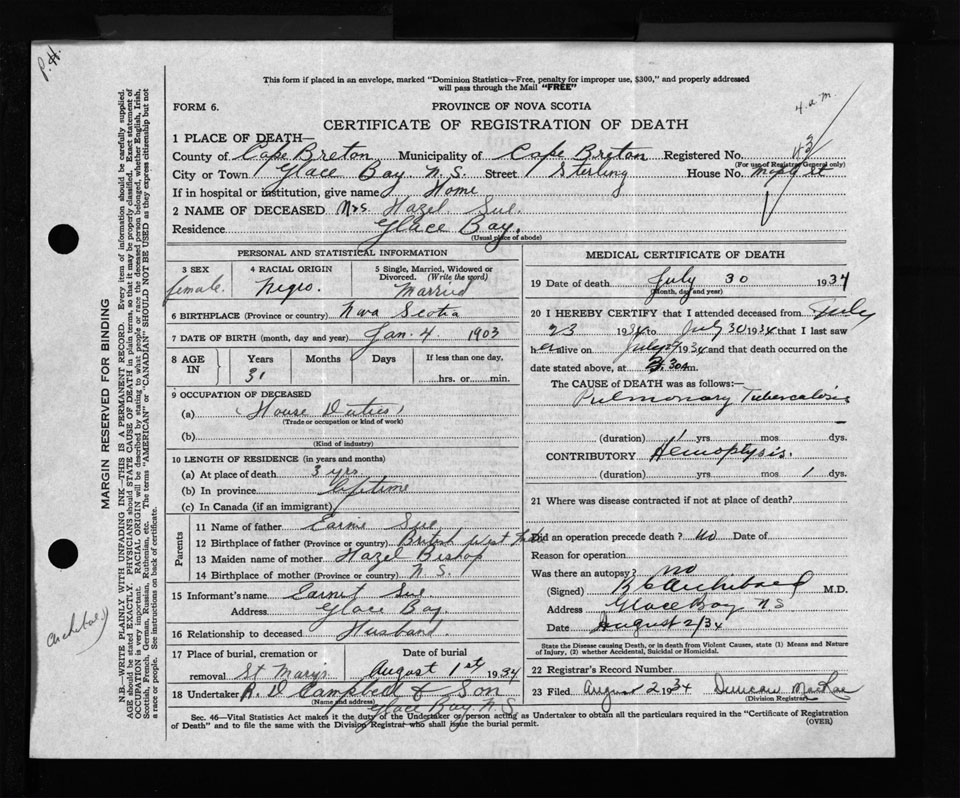 P. H.
This form if placed in an envelope, marked "Dominion Statistics—Free, penalty for improper use, $300," and properly addressed
will pass through the Mail "FREE"
FORM 6.
PROVINCE OF NOVA SCOTIA
4. a m.
CERTIFICATE OF REGISTRATION OF DEATH
1 PLACE OF DEATH—
County of Cape Breton Municipality of Cape Breton Registered No.
(For use of Registrar General only)
City or Town Glace Bay N. S. Street Sterling House No.
If in hospital or institution, give name Home
2 NAME OF DECEASED Mrs. Hazel Sue.
Residence Glace Bay.
(Usual place of abode)
PERSONAL AND STATISTICAL INFORMATION
3 SEX
female.
4 RACIAL ORIGIN
Negro.
5 Single, Married, Widowed or
Divorced. (Write the word)
Married
6 BIRTHPLACE (Province or country) Nova Scotia
7 DATE OF BIRTH (month, day and year) Jan. 4 1903
8 AGE
IN
Years
31
Months
Days
If less than one day,
hrs. or min.
9 OCCUPATION OF DECEASED
(a) (House Duties)
(Trade or occupation or kind of work)
(b)
(Kind of industry)
10 LENGTH OF RESIDENCE (in years and months)
(a) At place of death 3 yrs.
(b) In province lifetime
(c) In Canada (if an immigrant)
Parents
11 Name of father Earnie Sue
12 Birthplace of father (Province or country) British West
13 Maiden name of mother Hazel Bishop
14 Birthplace of mother (Province or country) N. S.
15 Informant's name Earnest Sue
Address Glace Bay.
16 Relationship to deceased Husband.
17 Place of burial, cremation or
removal St Mary's
Date of burial
August 1st 1934
18 Undertaker A. D Campbell & Son
(Name and address)
Glace Bay. N. S.
MEDICAL CERTIFICATE OF DEATH
19 Date of death July 30 1934
(Month, day and year)
20 I HEREBY CERTIFY that I attended deceased from July
23 1934 to July 30 1934 that I last saw
her alive on July 29 1934 and that death occurred on the
date stated above, at 3.30 a.m.
The CAUSE of DEATH was as follows:—
Pulmonary Tuberculosis
(duration) 1 yrs. mos. dys.
CONTRIBUTORY Hemoptysis.
(duration) yrs. mos. 1 dys.
21 Where was disease contracted if not at place of death?
Did an operation precede death? No Date of
Reason for operation
Was there an autopsy? no
(Signed) Archibald M.D.
Address Glace Bay N S
Date August 2/34
State the Disease causing Death, or in death from Violent Causes, state (1) Means and Nature
of Injury, (2) whether Accidental, Suicidal or Homicidal.
22 Registrar's Record Number
23 Filed August 2 1934 Duncan MacRae
(Division Registrar)
Sec. 46—Vital Statistics Act makes it the duty of the Undertaker or person acting as Undertaker to obtain all the particulars required in the "Certificate of Registration
of Death" and to file the same with the Division Registrar who shall issue the burial permit.
(OVER)
MARGIN RESERVED FOR BINDING
N.B.—WRITE PLAINLY WITH UNFADING INK—THIS IS A PERMANENT RECORD. Every item of information should be carefully supplied.
AGE should be stated EXACTLY. PHYSICIANS should STATE CAUSE OF DEATH in plain terms, so that it may be properly classified. Exact statement of
OCCUPATION is very important. RACIAL ORIGIN will be described by stating to what people or race the deceased person belonged, whether English, Irish,
Scottish, French, German, Russian, Ruthenian, etc. The terms "AMERICAN" or "CANADIAN" SHOULD NOT BE USED as they express citizenship but not
a race or people. See instructions on back of certificate.